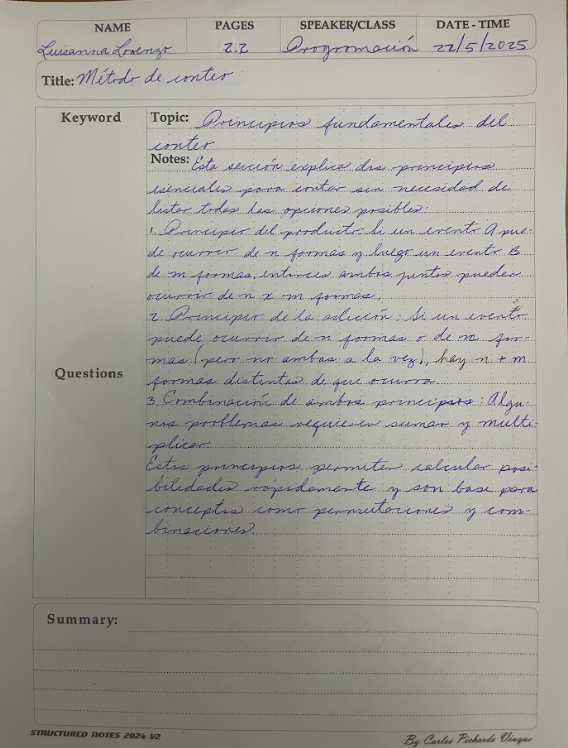 NAME PAGES SPEAKER/CLASS DATE - TIME
Luisanna Lorenzo 2.2 Programación 22/5/2025
Title: Método de conteo
Keyword
Topic: Principios fundamentales del
conteo
Notes: Esta sección explica dos principios
esenciales para contar sin necesidad de
listar todas las opciones posibles:
1. Principio del producto: Si un evento A pue-
de ocurrir de n formas y luego un evento B
de m formas, entonces ambos juntos pueden
ocurrir de n x m formas.
2. Principio de la adición: Si un evento
puede ocurrir de n formas o de m for-
mas (pero no ambas a la vez), hay n + m
Questions
formas distintas de que ocurra.
3. Combinación de ambos principios: Algu-
nos problemas requieren sumar y multi-
plicar.
Estos principios permiten calcular posi-
bilidades rápidamente y son base para
conceptos como permutaciones y com-
binaciones.
Summary:
STRUCTURED NOTES 2024 V2
By Carlos Pichardo Viuque